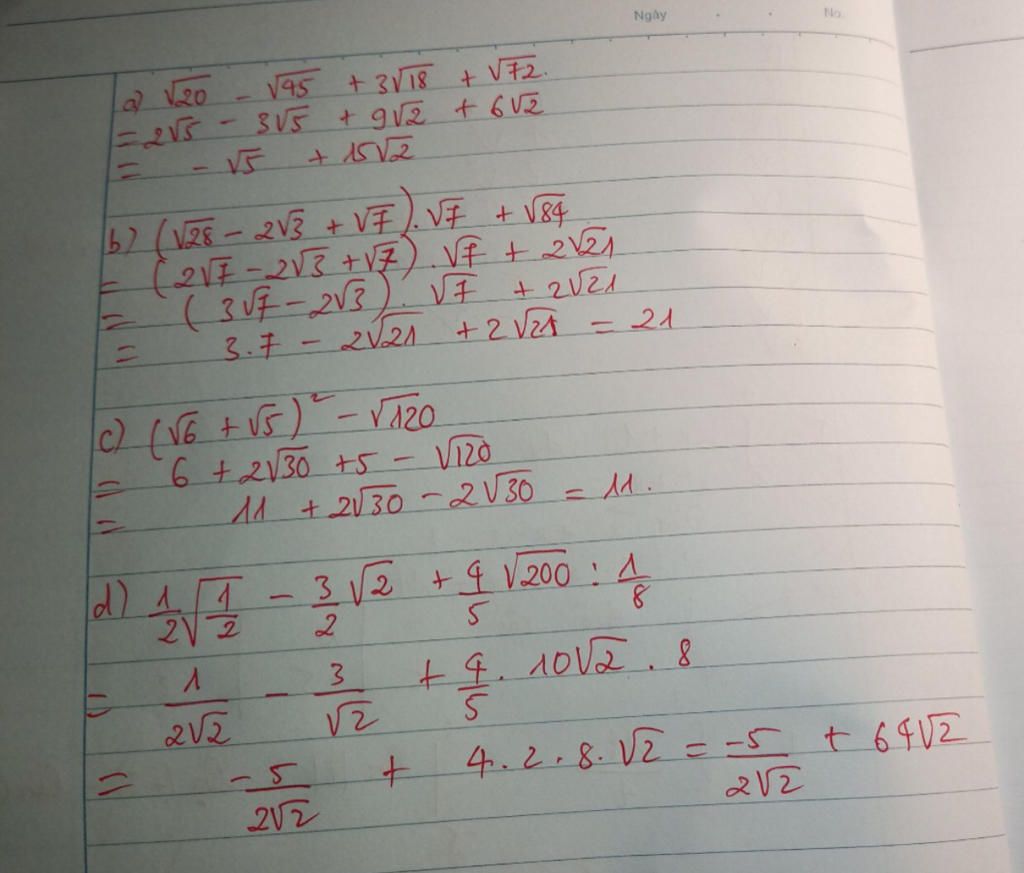 Ngày . . No.
a) √20 - √45 + 3√18 + √72.
= 2√5 - 3√5 + 9√2 + 6√2
= - √5 + 15√2
b) (√28 - 2√3 + √7).√7 + √84
= (2√7 - 2√3 + √7).√7 + 2√21
= (3√7 - 2√3).√7 + 2√21
= 3.7 - 2√21 + 2√21 = 21
c) (√6 + √5)² - √120
= 6 + 2√30 + 5 - √120
= 11 + 2√30 - 2√30 = 11.
d) 1/2 √(1/2) - 3/2 √2 + 4/5 √200 : 1/8
= 1/(2√2) - 3/√2 + 4/5 . 10√2 . 8
= -5/(2√2) + 4.2.8.√2 = -5/(2√2) + 64√2